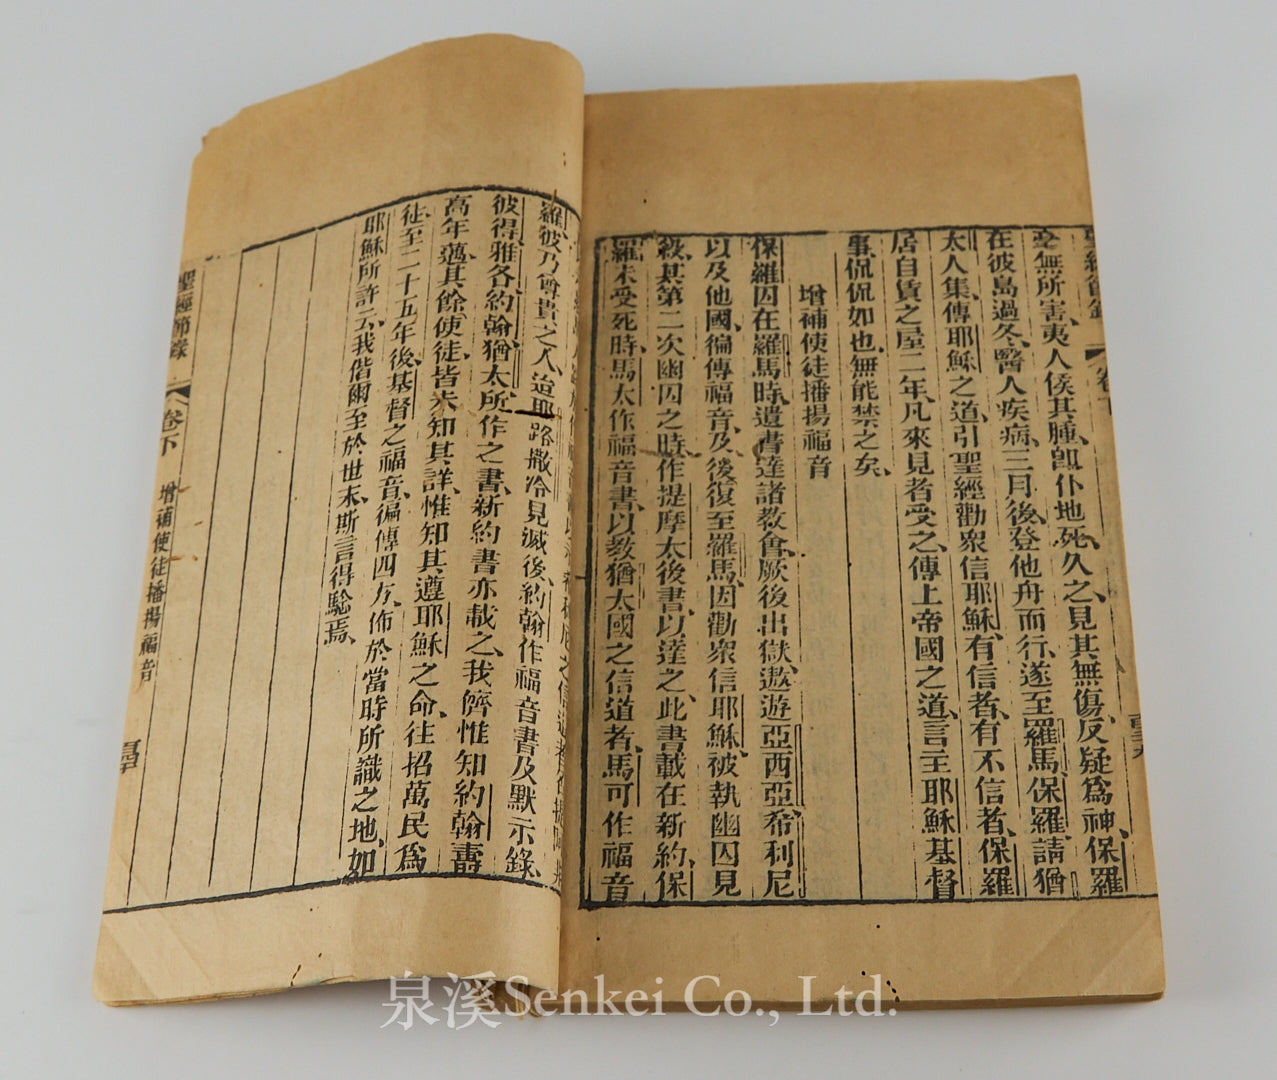 聖經節錄
卷下
毫無所害、夷人俟其腫、卽仆地死、久之、見其無傷、反疑爲神、保羅
在彼島過冬、醫人疾病、三月後、登他舟而行、遂至羅馬、保羅請猶
太人集、傳耶穌之道、引聖經勸衆信耶穌、有信者、有不信者、保羅
居自賃之屋二年、凡來見者受之、傳上帝國之道、言主耶穌基督
事、侃侃如也、無能禁之矣、
增補使徒播揚福音
保羅囚在羅馬時、遺書達諸教會、厥後出獄、遨遊亞西亞、希利尼
以及他國、徧傳福音、及後復至羅馬、因勸衆信耶穌、被執幽囚見
殺、其第二次幽囚之時、作提摩太後書、以達之、此書載在新約、保
羅未受死時、馬太作福音書、以教猶太國之信道者、馬可作福音
羅、彼乃尊貴之人、迨耶路撒冷見滅後、約翰作福音書及默示錄、
彼得雅各約翰猶太所作之書、新約書亦載之、我儕惟知約翰壽
高年邁、其餘使徒、皆未知其詳、惟知其遵耶穌之命、往招萬民爲
徒、至二十五年後、基督之福音、徧傳四方、佈於當時所識之地、如
耶穌所許云、我偕爾至於世末、斯言得騐焉、
聖經節錄
卷下
增補使徒播揚福音
泉溪Senkei Co., Ltd.